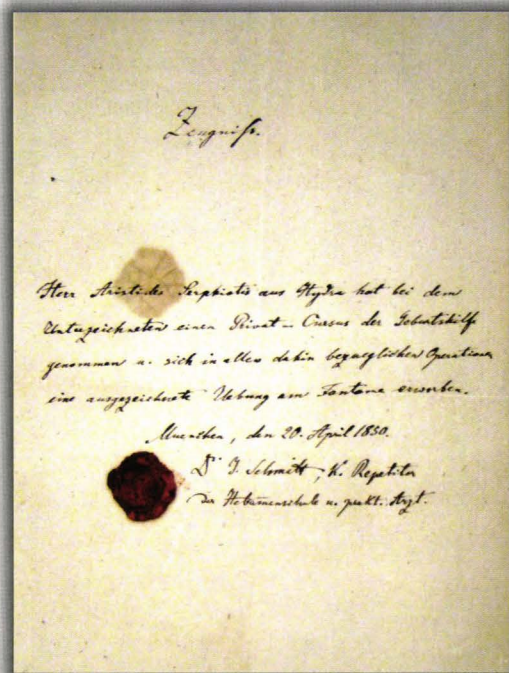 Zeugniss.
Herr Aristides Serphiotis aus Hydra hat bei dem
Unterzeichneten einen Privat-Cursus der Geburtshilfe
genommen u. sich in allen dahin bezueglichen Operationen
eine ausgezeichnete Uebung am Fantome erworben.
Muenchen, den 20. April 1850.
Dr J. Schmitt, K. Repetitor
der Hebamenschule u. prakt. Arzt.